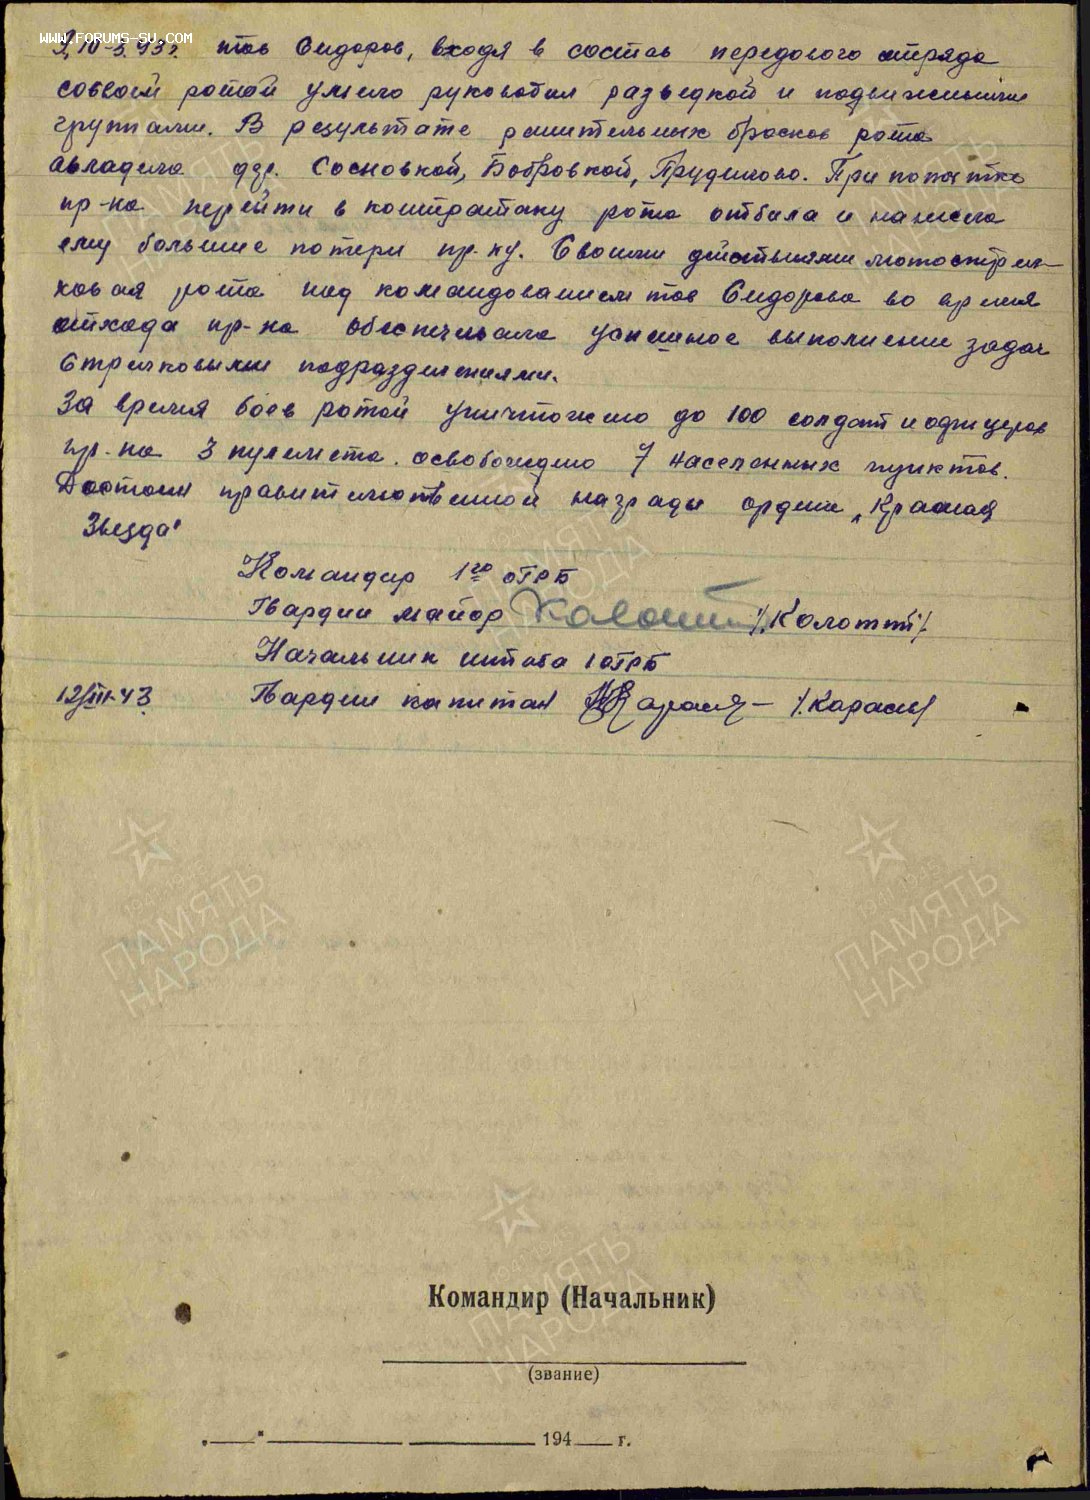 WWW.FORUMS-SU.COM
9,10-3.43г. тов Сидоров, входя в состав передового отряда
совоей ротой умело руководил разведкой и подвижными
группами. В результате решительных бросков рота
овладела дер. Сосновкой, Бобровкой, Прудилово. При попытке
пр-ка перейти в контратаку рота отбила и нанесла
ему большие потери пр-ку. Своими действиями мотострел-
ковая рота под командованием тов Сидорова во время
отхода пр-ка обеспечивала успешное выполнение задач
стрелковыми подразделениями.
За время боев ротой уничтожено до 100 солдат и офицеров
пр-ка 3 пулемета. освобождено 7 населенных пунктов.
Достоин правительственной награды ордена „Красная
Звезда"
Командир 1го оТРБ
Гвардии майор /.Колотти/.
Начальник штаба 1 оТРБ
12/III-43 Гвардии капитан /.Карасик/
ПАМЯТЬ НАРОДА
1941-1945
Командир (Начальник)
(звание)
194 г.